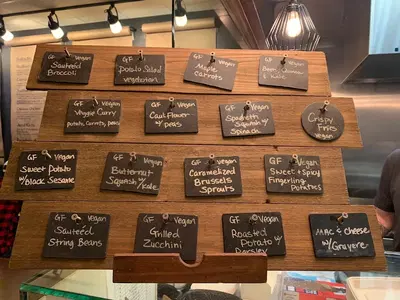 GF Vegan
Sauteéd
Broccoli
GF
potato Salad
vegetarian
GF Vegan
Maple
Carrots
GF Vegan
& Kale
GF Vegan
Veggie Curry
potato, carrots, peas
GF Vegan
Cauliflower
w/ peas
GF Vegan
Spaghetti
Squash w/
Spinach
Crispy
Fries
Vegan
GF Vegan
Sweet Potato
w/ Black Sesame
GF Vegan
Butternut
Squash w/ Kale
GF Vegan
Caramelized
Brussels
Sprouts
GF Vegan
Sweet & Spicy
Fingerling
Potatoes
GF Vegan
Sauteéd
String Beans
GF Vegan
Grilled
Zucchini
GF Vegan
Roasted
Potato w/
Parsley
Mac & cheese
w/ Gruyere